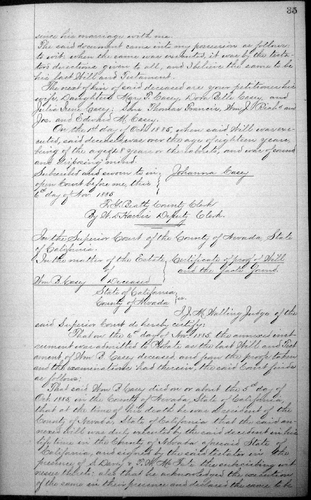 35
since his marriage with me.
The said document came into my possession as follows
to wit, when the same was executed, it was by the testa-
tors directions given to all, and I believe the same to be
his last Will and Testament.
The next of kin of said deceased are your petitioner his
wife, Daughters Casey, Bell Casey and
Julia Irene Casey, Thomas Francis, Wm J.
Jos. and Edward M. Casey.
On the 1st day of Oct 1885, when said Will was exe-
cuted, said deceased was over the age of eighteen years,
being of the age of years or thereabouts, and was of sound
and disposing mind.
Subscribed and sworn to in
open Court before me, this Johanna Casey
6th day of Nov 1885
County Clerk
By Deputy Clerk.
In the Superior Court of the County of Nevada, State
of California.
In the matter of the Estate Certificate of proof of Will
of and the facts found
Wm B. Casey Deceased
State of California
County of Nevada ss
I, J. M. Walling Judge of the
said Superior Court do hereby certify:
That on the 6th day of Nov 1885, the annexed instru-
ment was admitted to Probate as the last Will and Test-
ament of Wm B. Casey deceased, and from the proofs taken
and the examination had therein, the said Court finds
as follows:
That said Wm B. Casey died on or about the 5th day of
Oct. 1885, in the County of Nevada, State of California,
that at the time of his death he was a resident of the
County of Nevada, State of California, that the said an-
nexed Will was duly executed by the said decedent in his
life time in the County of Nevada aforesaid State of
California, and signed by the said testator in the
presence of and the subscribing wit-
nesses thereto; also that he acknowledged the execution
of the same in their presence and declared the same to